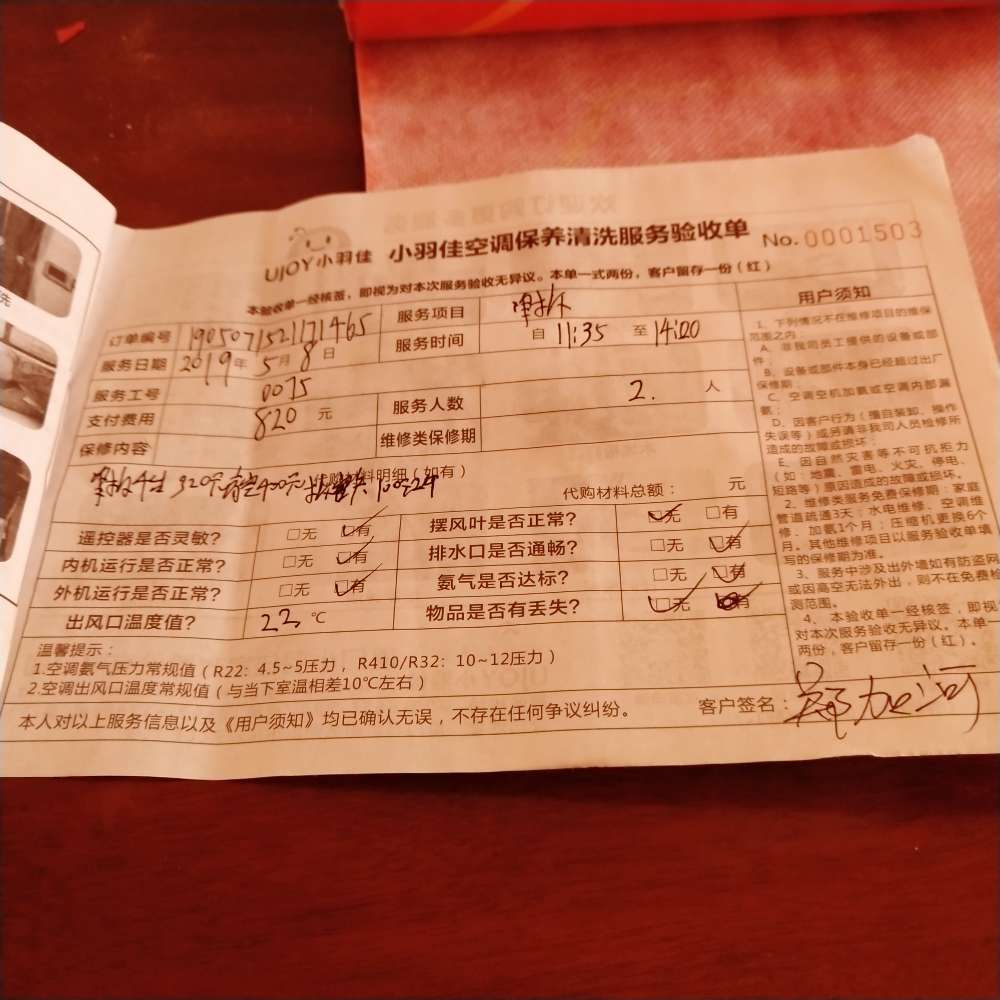 洗
UJOY小羽佳 小羽佳空调保养清洗服务验收单 No.0001503
本验收单一经核签，即视为对本次服务验收无异议。本单一式两份，客户留存一份（红）
订单编号 1905071521171465 服务项目
服务日期 2019年5月8日 服务时间 自 11:35 至 14:00
服务工号 0075
支付费用 820 元 服务人数 2. 人
保修内容 维修类保修期
代购材料明细（如有）
代购材料总额： 元
遥控器是否灵敏？ □无 □有 摆风叶是否正常？ □无 □有
内机运行是否正常？ □无 □有 排水口是否通畅？ □无 □有
外机运行是否正常？ □无 □有 氨气是否达标？ □无 □有
出风口温度值？ 22 ℃ 物品是否有丢失？ □无 □有
温馨提示：
1.空调氨气压力常规值（R22：4.5~5压力， R410/R32：10~12压力）
2.空调出风口温度常规值（与当下室温相差10℃左右）
本人对以上服务信息以及《用户须知》均已确认无误，不存在任何争议纠纷。 客户签名： 郑加河
用户须知
1、下列情况不在维修项目的维保
范围之内
A、非我司员工提供的设备或部
件；
B、设备或部件本身已经超过出厂
保修期；
C、空调空机加氨或空调内部漏
氨；
D、因客户行为（擅自装卸、操作
失误等）或另请非我司人员检修所
造成的故障或损坏；
E、因自然灾害等不可抗拒力
（如：地震、雷电、火灾、停电、
短路等）原因造成的故障或损坏。
2、维修类服务免费保修期：家庭
管道疏通3天；水电维修、空调维
修、加氨1个月；压缩机更换6个
月。其他维修项目以服务验收单填
写的保修期为准。
3、服务中涉及出外墙如有防盗网
或因高空无法外出，则不在免费检
测范围。
4、本验收单一经核签，即视
对本次服务验收无异议。本单一
两份，客户留存一份（红）。